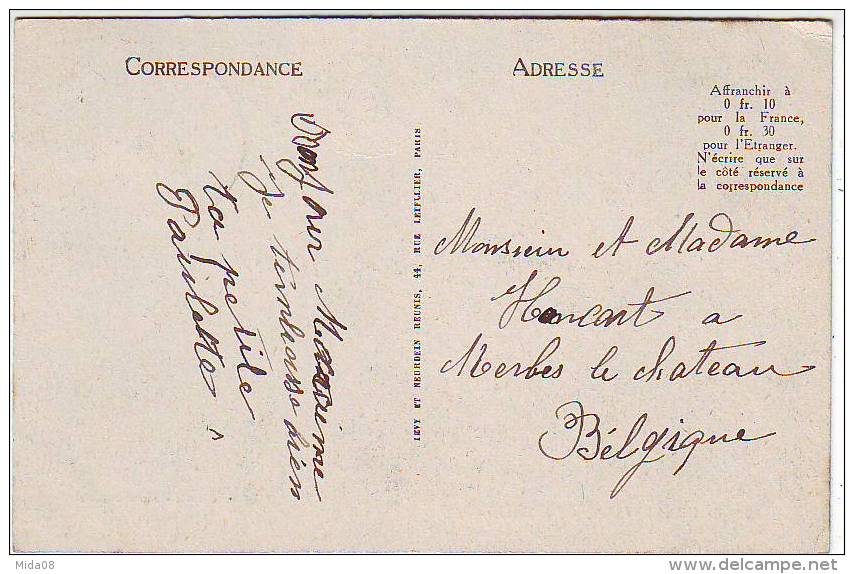 CORRESPONDANCE
ADRESSE
Affranchir à
0 fr. 10
pour la France,
0 fr. 30
pour l'Etranger.
N'écrire que sur
le côté réservé à
la correspondance
Bonjour Maxime
Je tembrasse bien
ta petite
Paulette
LEVY ET NEURDEIN REUNIS, 44, RUE LETELLIER, PARIS
Monsieur et Madame
Honcart a
Merbes le chateau
Bélgique
Mida08
www.delcampe.net